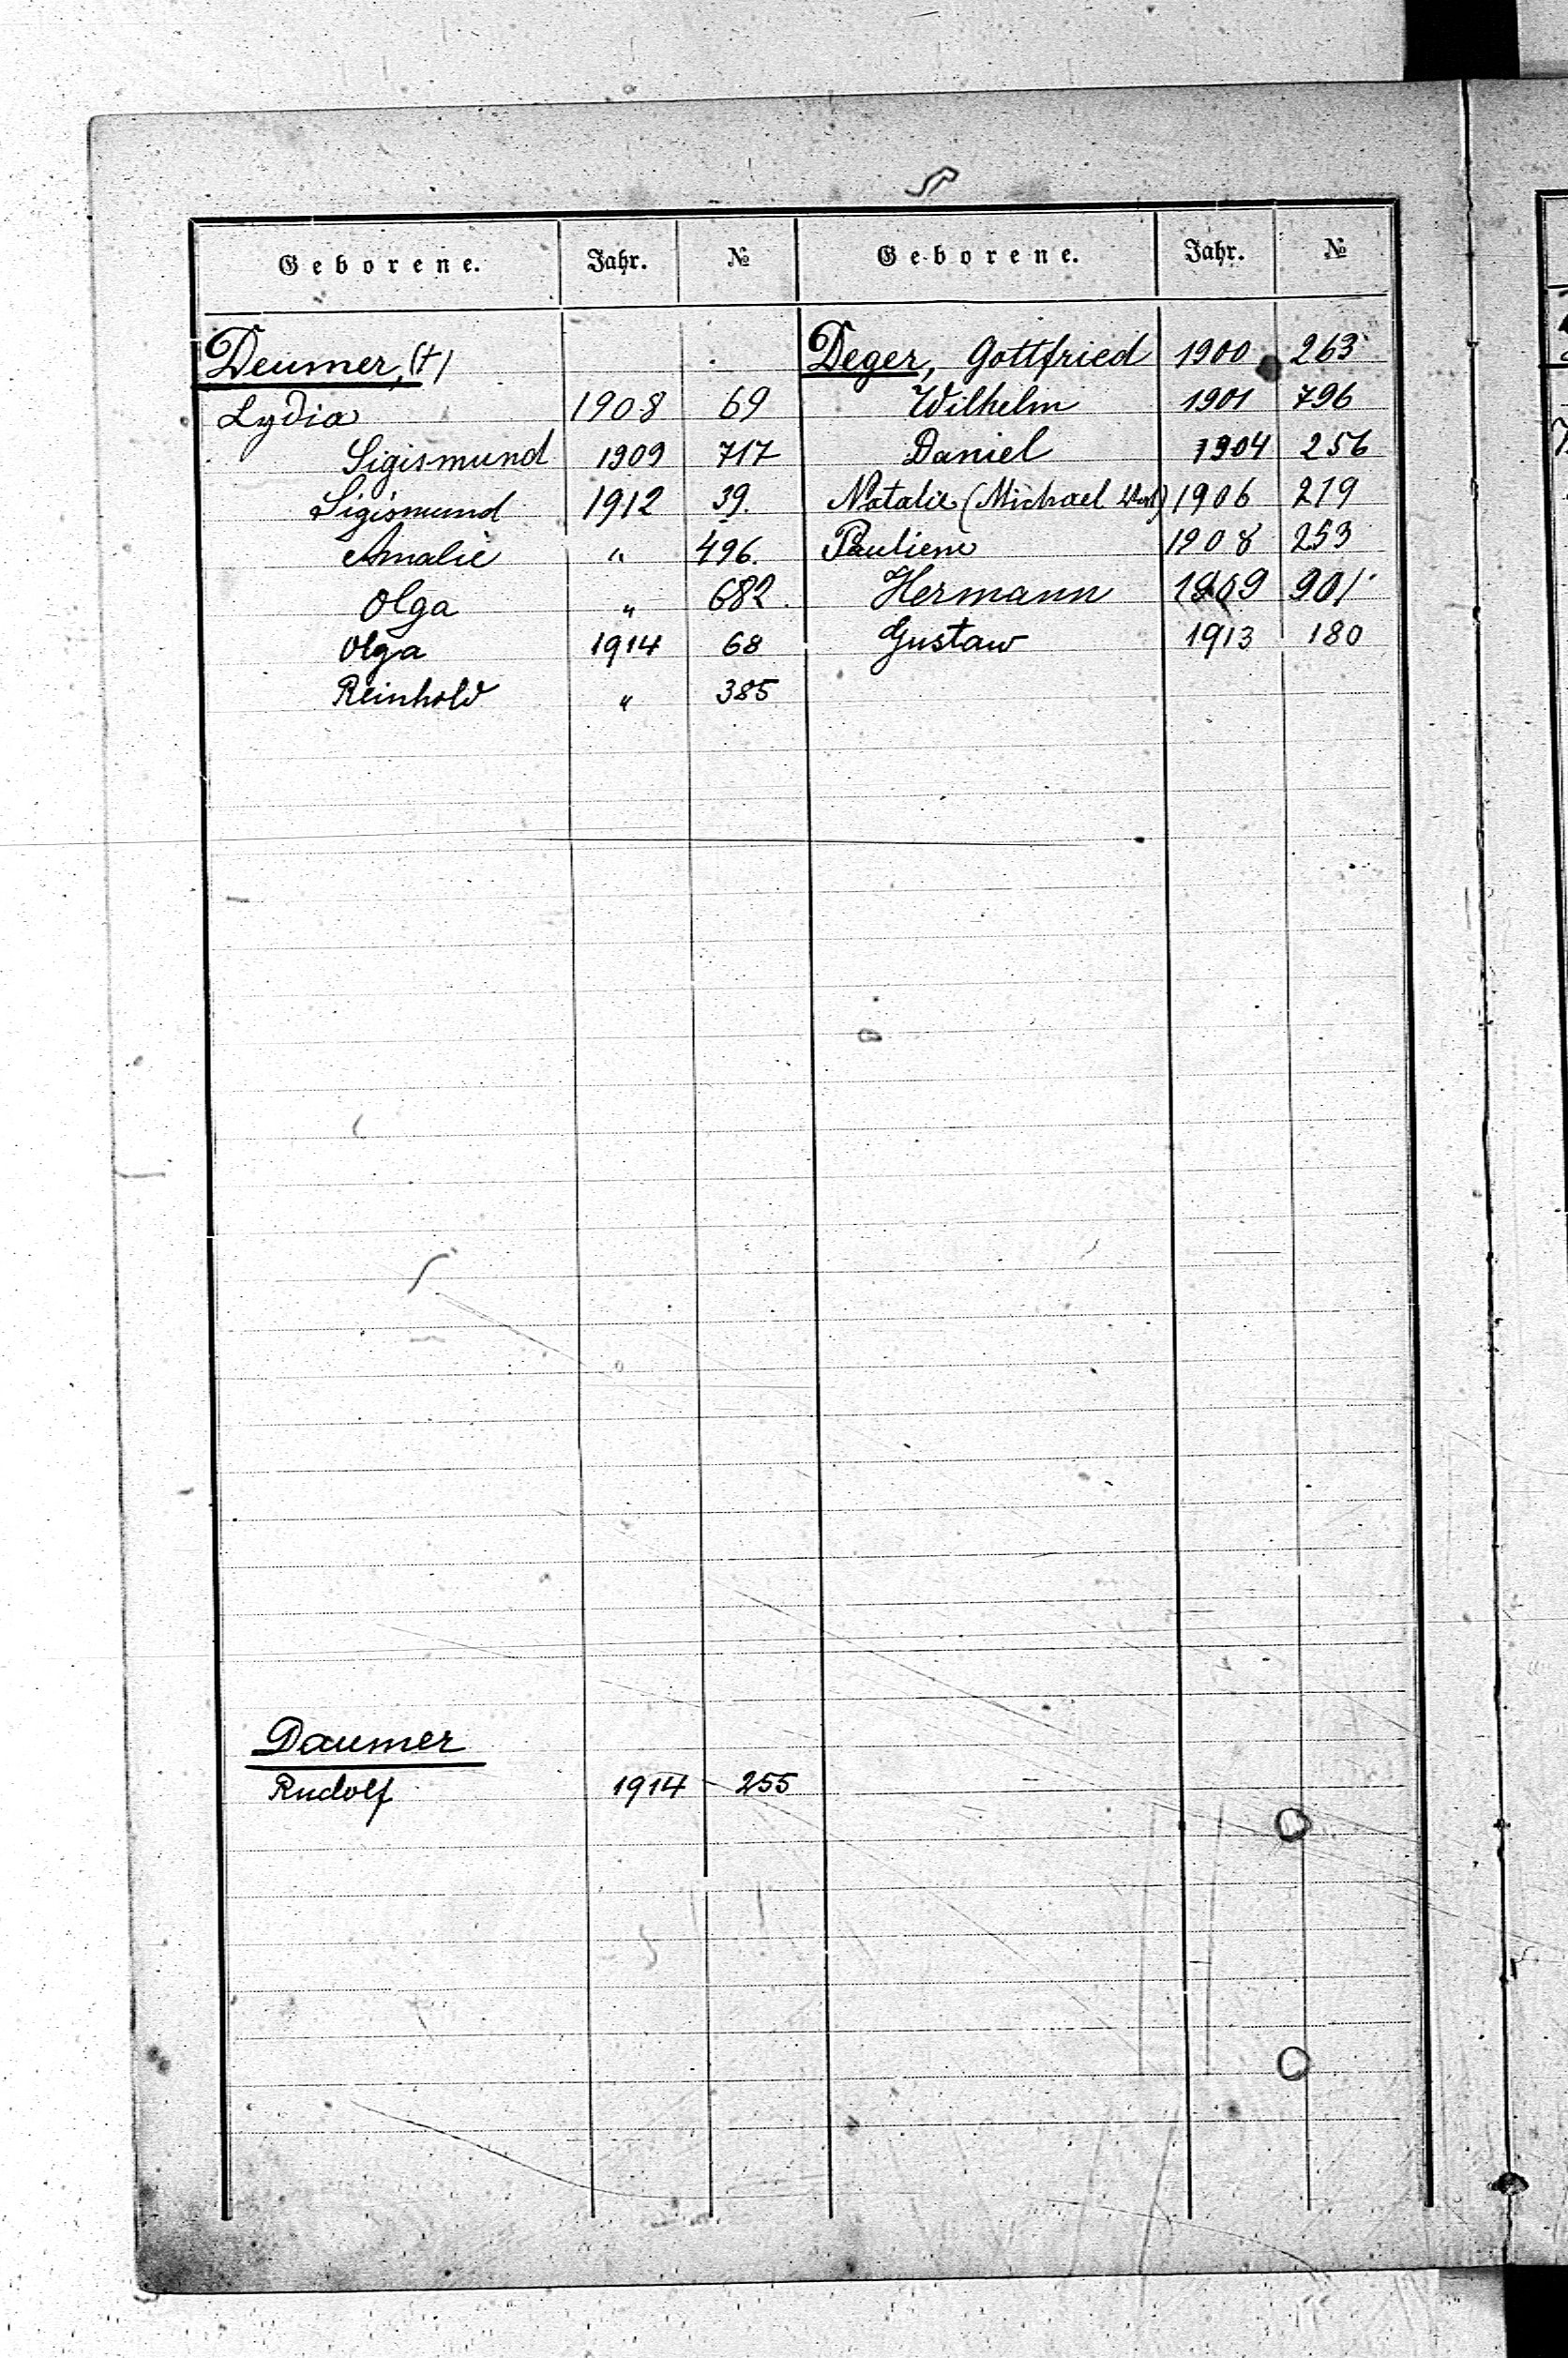 Geborene. Jahr. №
Deumer, (+)
Lydia 1908 69
Sigismund 1909 717
Sigismund 1912 39.
Amalie " 496.
Olga " 682.
Olga 1914 68
Reinhold " 385
Daumer
Rudolf 1914 255
Geborene. Jahr. №
Deger, Gottfried 1900 263
Wilhelm 1901 796
Daniel 1904 256
Natalie (Michael 1906 219
Pauliene 1908 253
Hermann 1909 901
Gustaw 1913 180